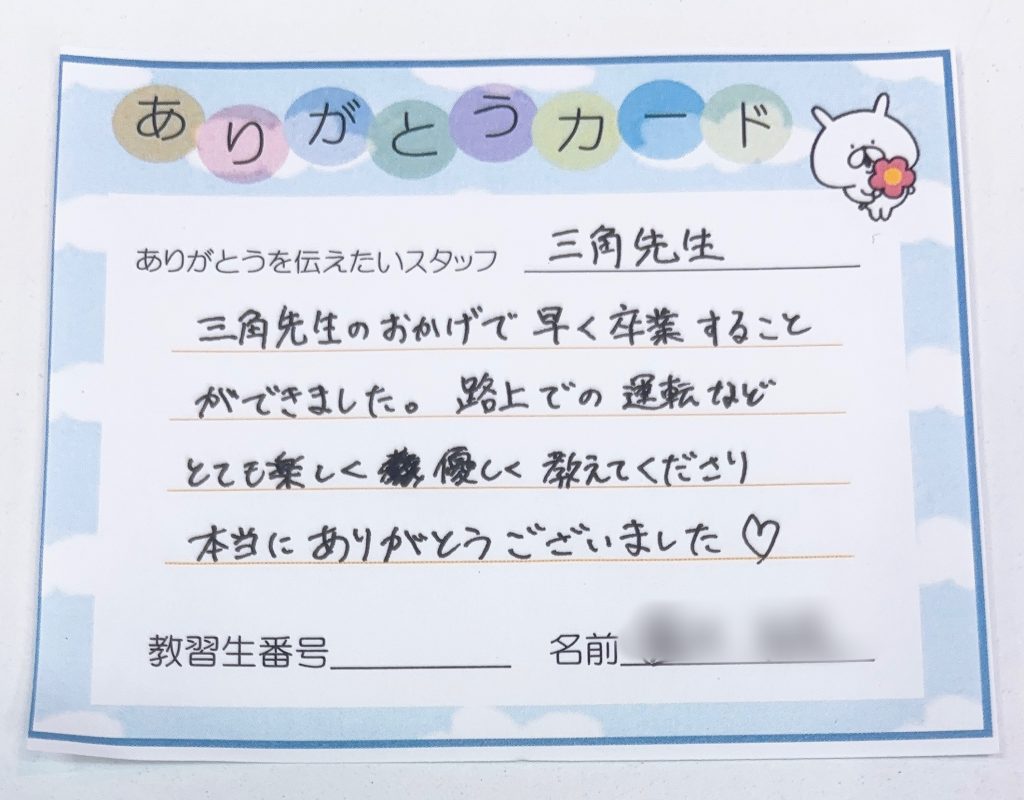 ありがとうカード
ありがとうを伝えたいスタッフ 三角先生
三角先生のおかげで早く卒業すること
ができました。路上での運転など
とても楽しく優しく教えてくださり
本当にありがとうございました♡
教習生番号
名前